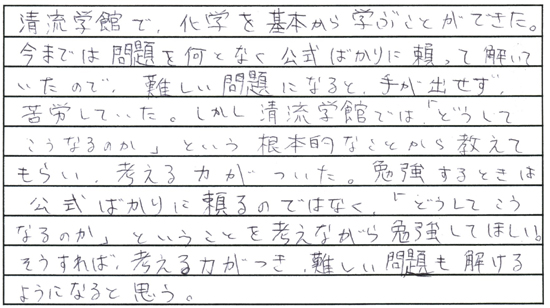 清流学館で、化学を基本から学ぶことができた。
今までは問題を何となく公式ばかりに頼って解いて
いたので、難しい問題になると、手が出せず、
苦労していた。しかし清流学館では、「どうして
こうなるのか」という根本的なことから教えて
もらい、考える力がついた。勉強するときは
公式ばかりに頼るのではなく、「どうしてこう
なるのか」ということを考えながら勉強してほしい。
そうすれば、考える力がつき、難しい問題も解ける
ようになると思う。